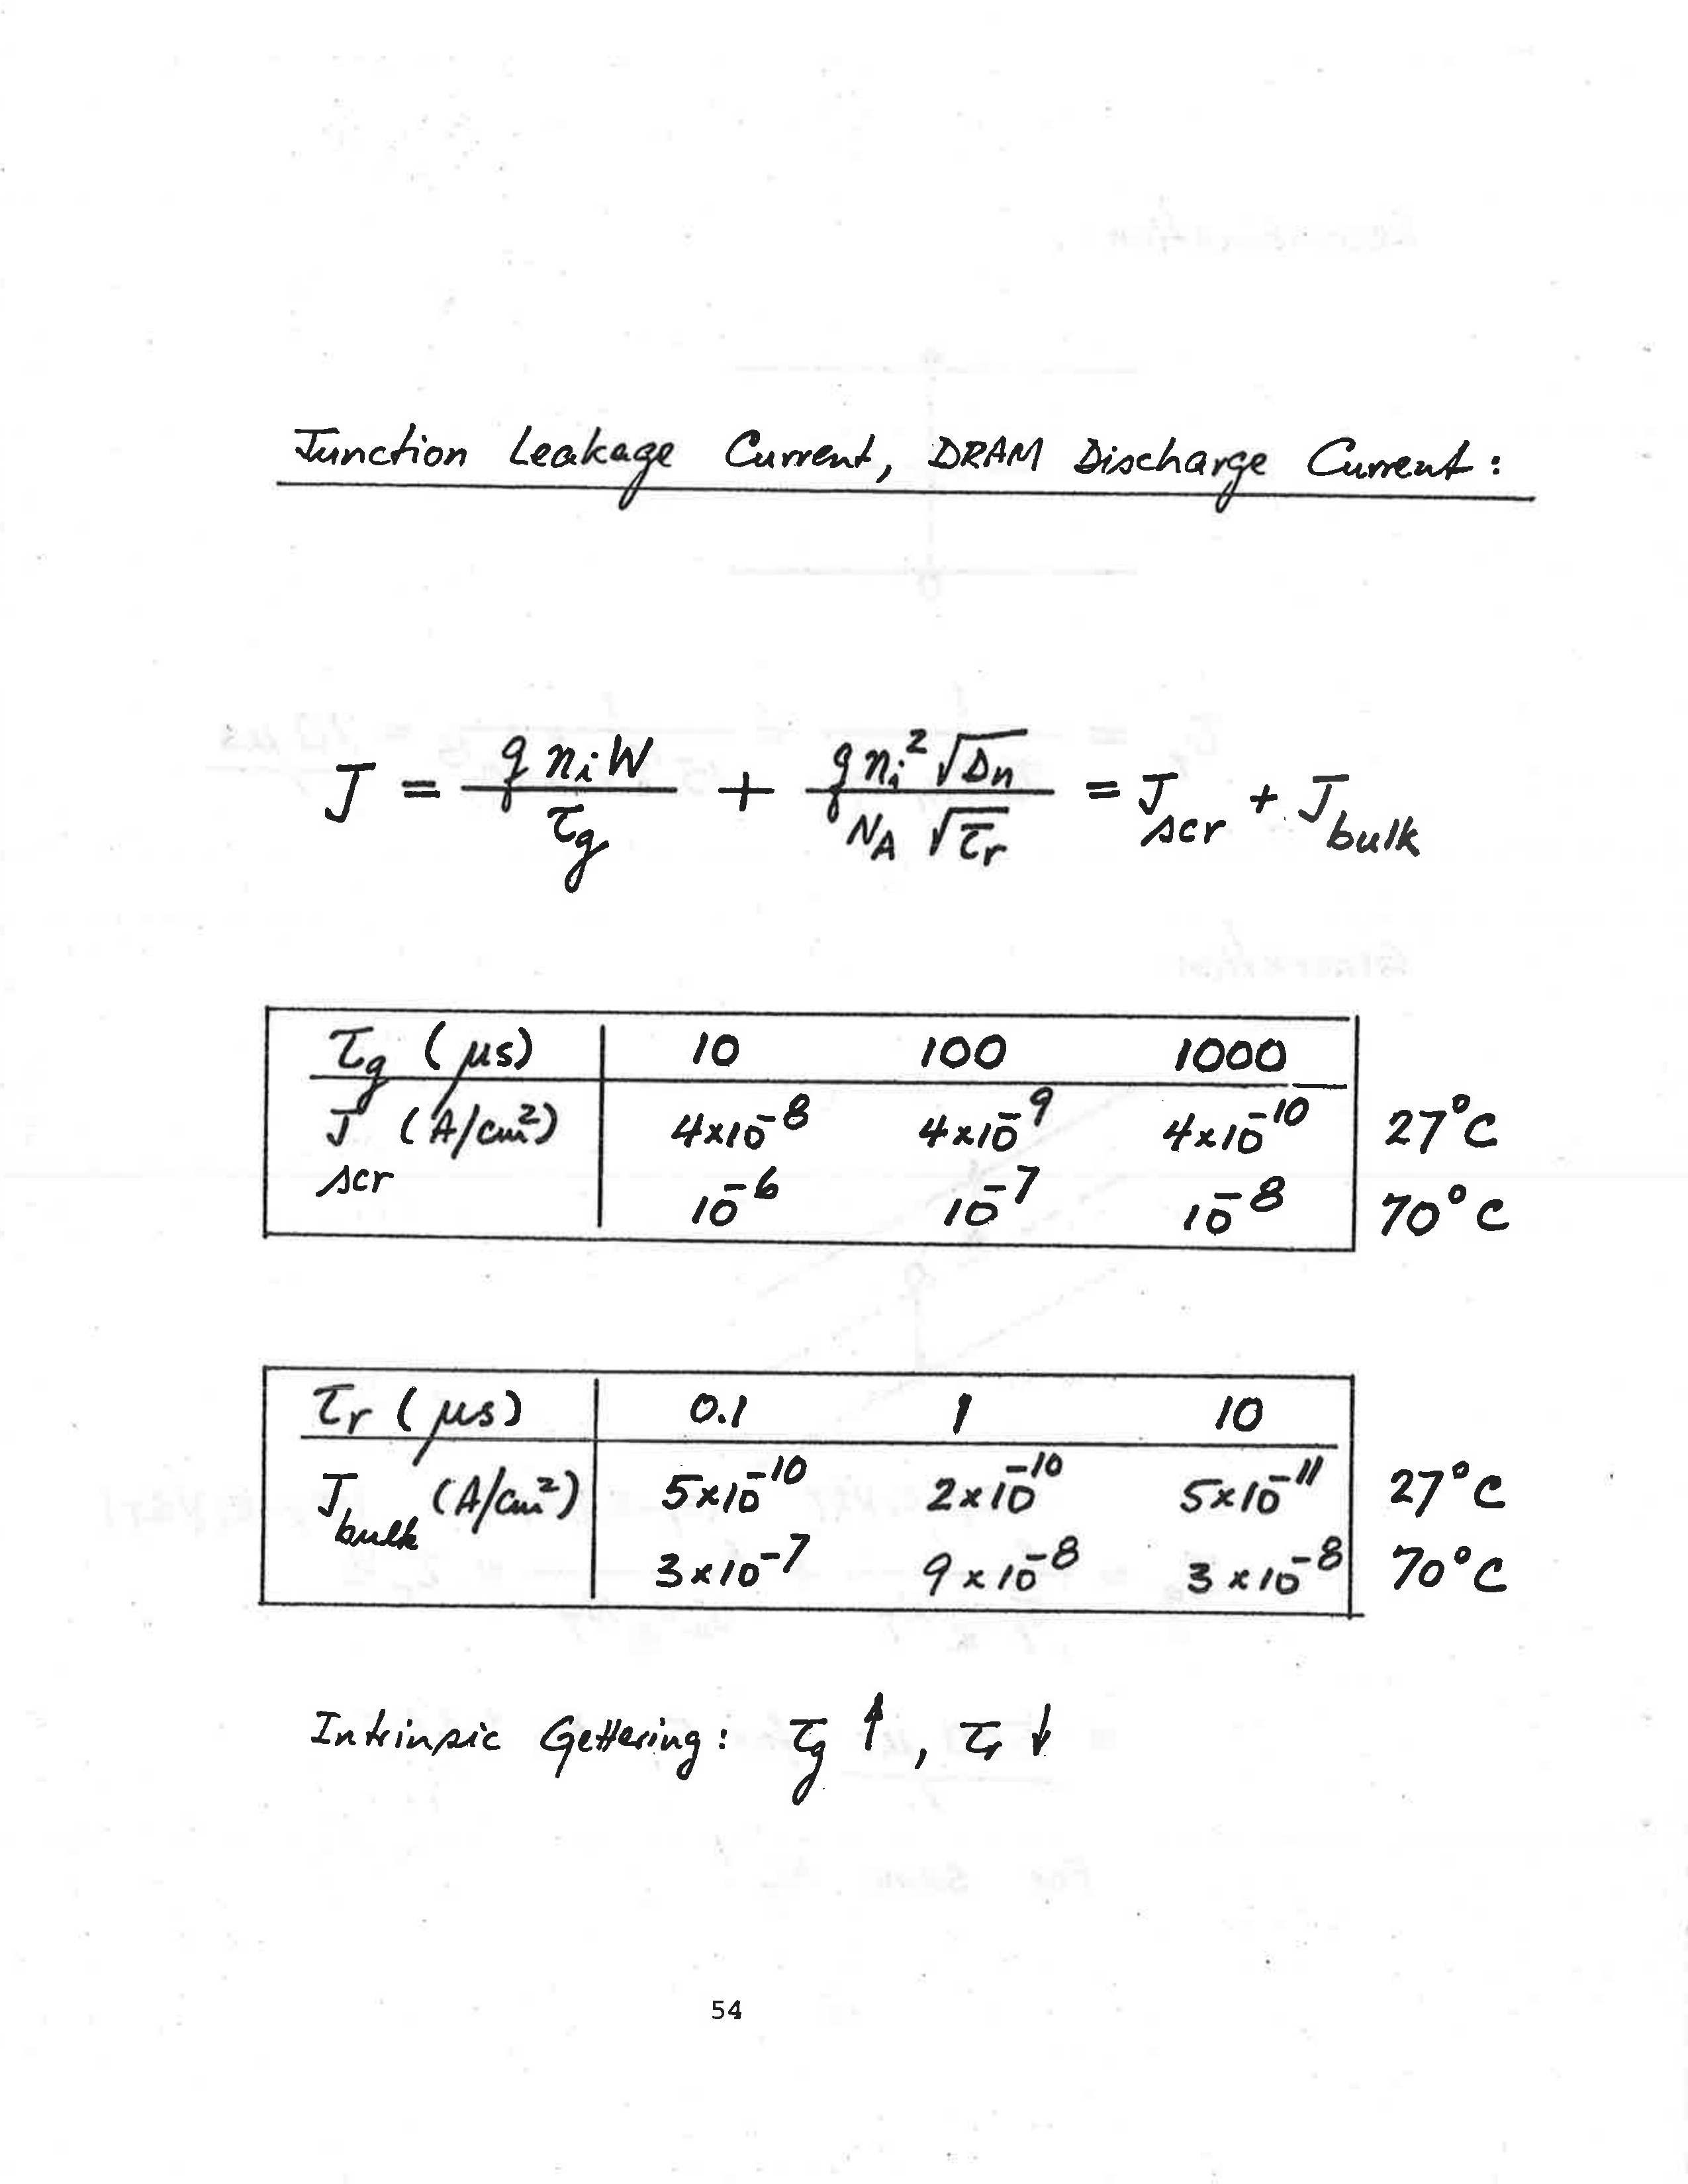 Junction Leakage Current, DRAM Discharge Current:
J = q nᵢ W / τg + q nᵢ² √Dn / NA √τr = Jscr + Jbulk
τg (μs) 10 100 1000
Jscr (A/cm²) 4x10⁻⁸ 4x10⁻⁹ 4x10⁻¹⁰ 27°C
10⁻⁶ 10⁻⁷ 10⁻⁸ 70°C
τr (μs) 0.1 1 10
Jbulk (A/cm²) 5x10⁻¹⁰ 2x10⁻¹⁰ 5x10⁻¹¹ 27°C
3x10⁻⁷ 9x10⁻⁸ 3x10⁻⁸ 70°C
Intrinsic Gettering: τg ↑, τr ↓
54